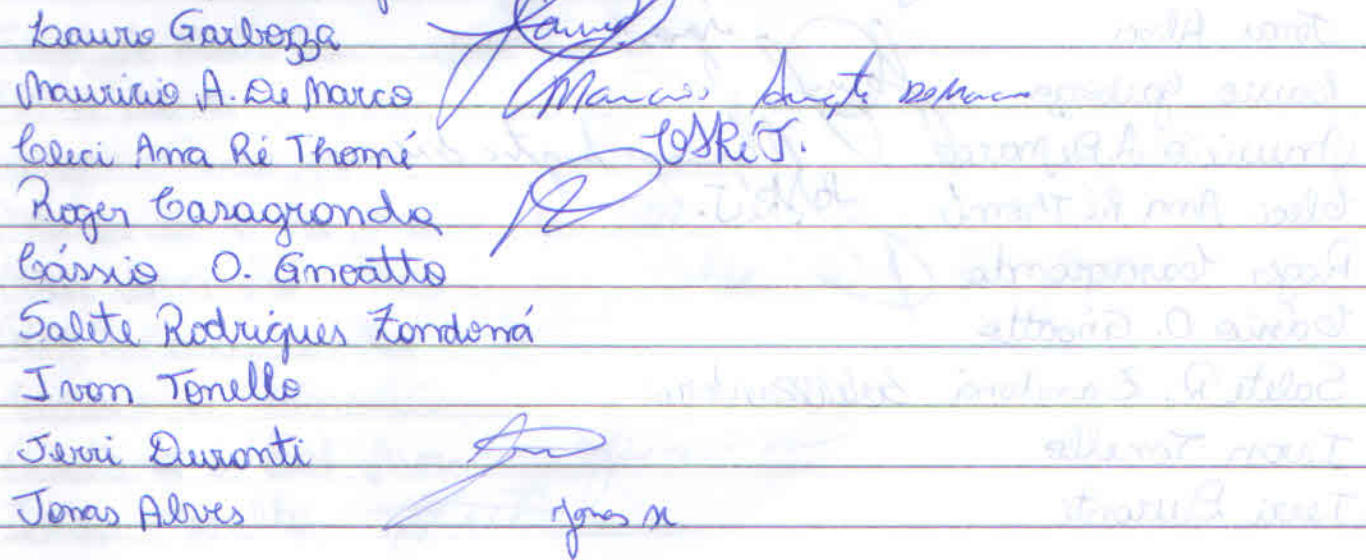 Lauro Garbozza
Mauricio A. De Marco
Cleci Ana Ré Thomé CARéT.
Roger Casagranda
Cássio O. Gnoatto
Salete Rodrigues Zondoná
Ivon Tonello
Jerri Duronti
Jonas Alves Jonas